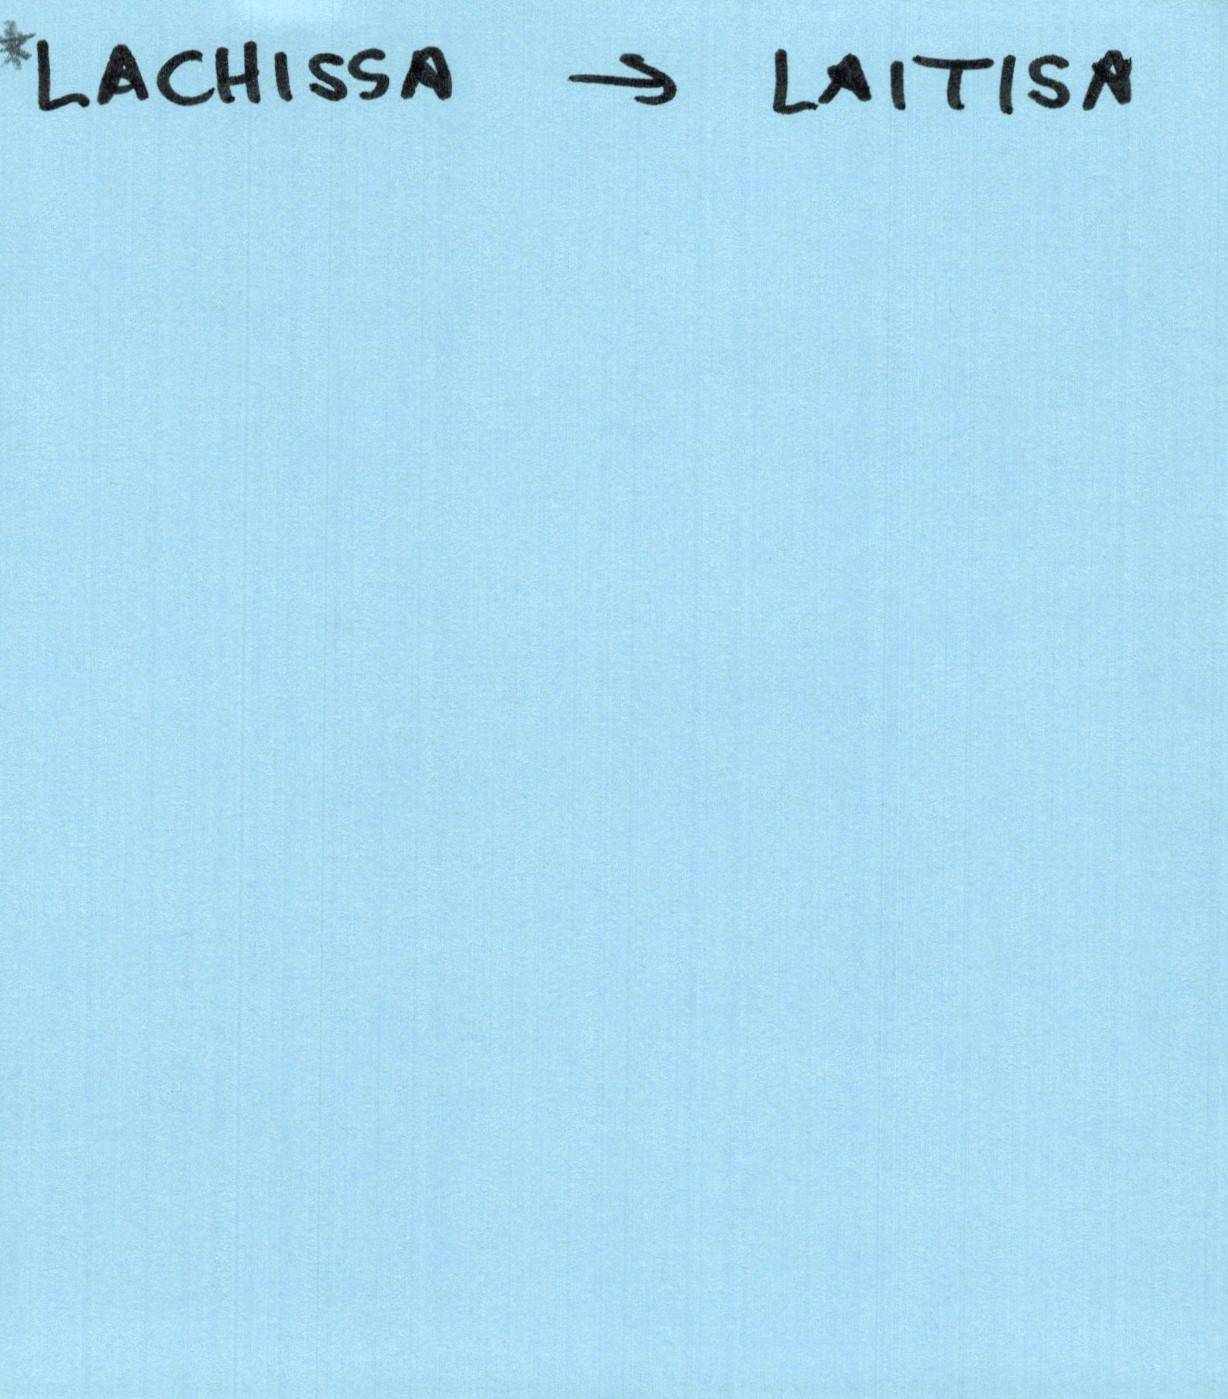 *LACHISSA → LAITISA